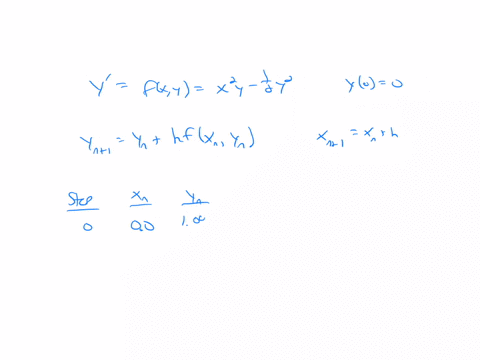 y' = f(x,y) = x²y - ½y² y(0) = 0
yₙ₊₁ = yₙ + hf(xₙ, yₙ) xₙ₊₁ = xₙ + h
Step xₙ yₙ
0 0.0 1.00